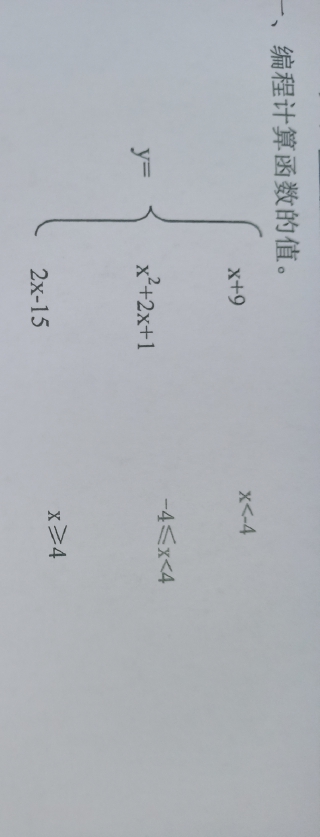 一、编程计算函数的值。
x+9 x<-4
y= x²+2x+1 -4≤x<4
2x-15 x≥4